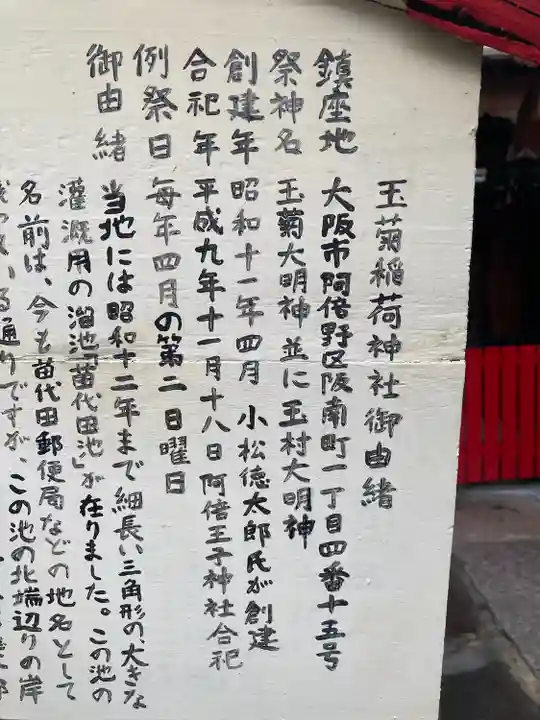 玉菊稲荷神社御由緒
鎮座地 大阪市阿倍野区阪南町一丁目四番十五号
祭神名 玉菊大明神並に玉村大明神
創建年 昭和十一年四月 小松德太郎氏が創建
合祀年 平成九年十一月十八日 阿倍王子神社合祀
例祭日 毎年四月の第二日曜日
御由緒 当地には昭和十二年まで細長い三角形の大きな
灌漑用の溜池「苗代田池」が在りました。この池の
名前は、今も苗代田郵便局などの地名として
る通りですが、この池の北端辺りの岸